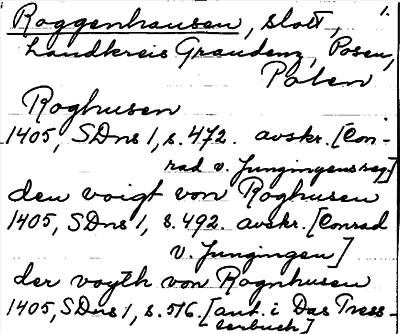 Roggenhausen, slott, 1.
Landkreis Graudenz, Posen,
Polen
Roghusen
1405, SDns 1, s. 472. avskr. [Con-
rad v. Jungingens reg.]
den voigt von Roghusen
1405, SDns 1, s. 492. avskr. [Conrad
v. Jungingen]
der voyth von Rognhusen
1405, SDns 1, s. 516. [ant. i Das Tress-
lerbuch]